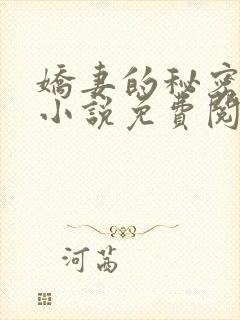 嬌妻的秘密
小說免費閱
河茜